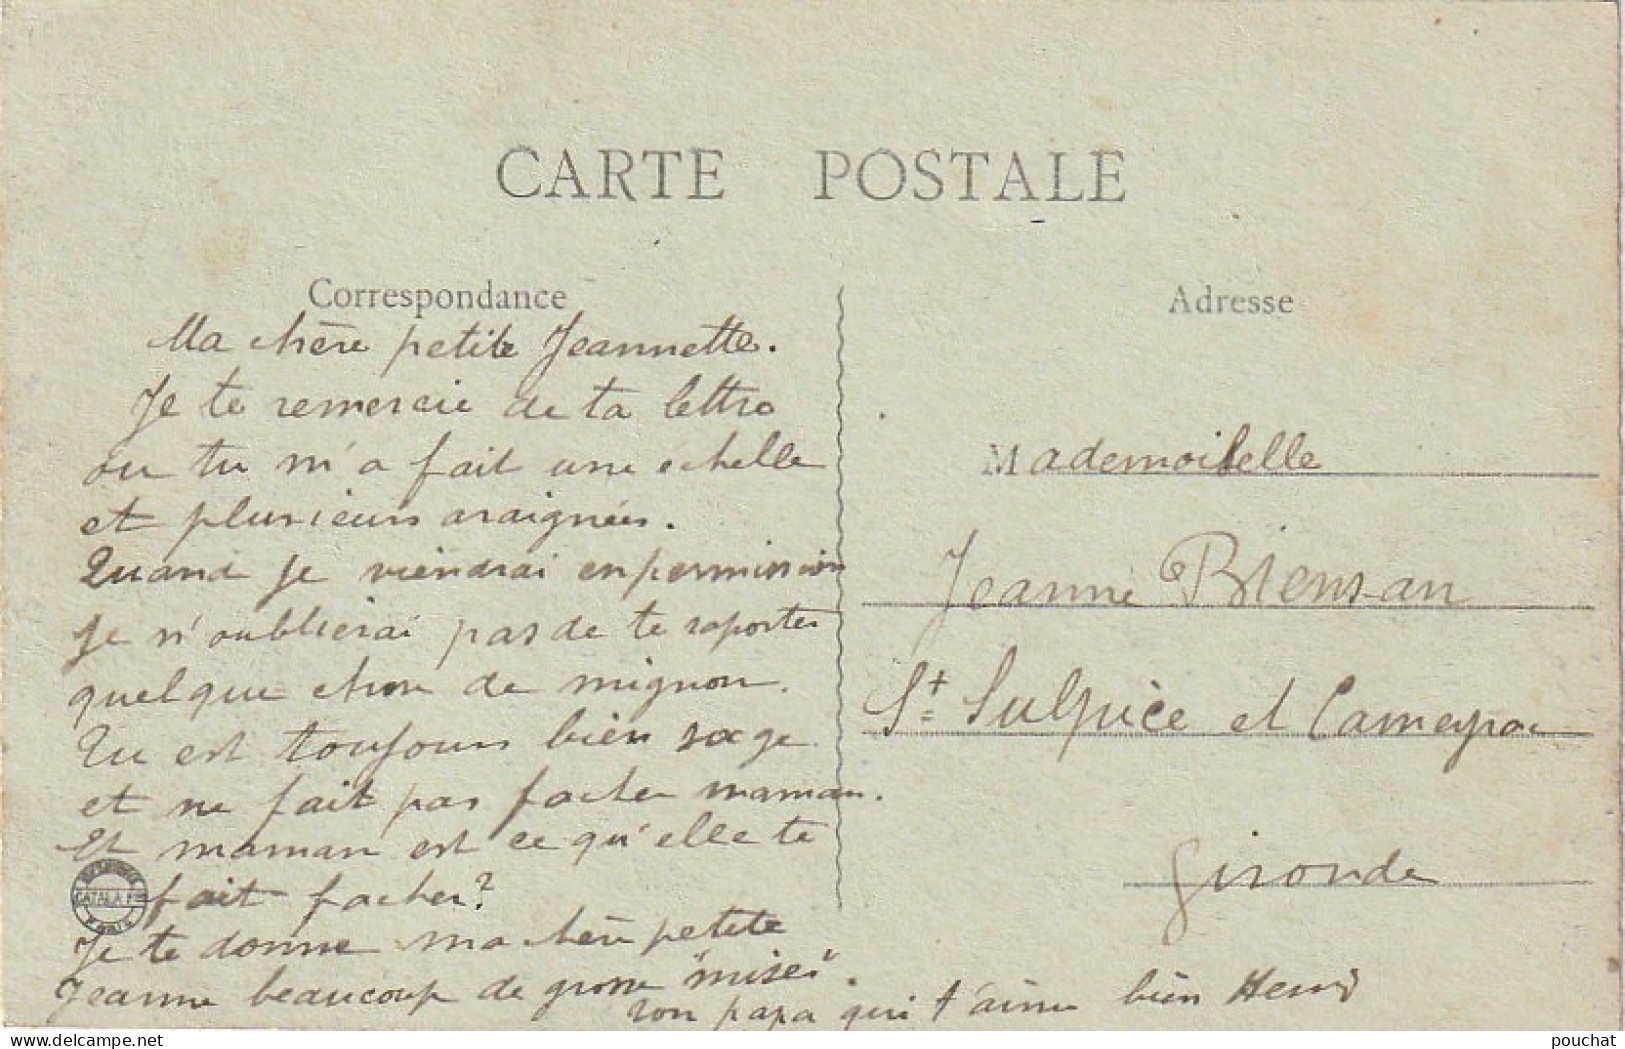 CARTE POSTALE
Correspondance
Ma chère petite Jeannette.
Je te remercie de ta lettre
ou tu m'a fait une échelle
et plusieurs araignées.
Quand je viendrai en permission
Je n'oublierai pas de te raporter
quelque chose de mignon.
Tu est toujours bien sage
et ne fait pas facher maman.
Et maman est ce qu'elle te
fait facher?
Je te donne ma chère petite
Jeanne beaucoup de grosse "mises".
ton papa qui t'aime bien Henri
CATALA
PARIS
Adresse
Mademoiselle
Jeanne Biensan
St Sulpice et Cameyrac
Gironde
pouchat